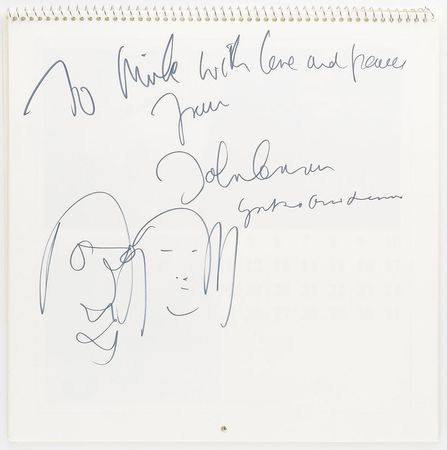 To Mink with love and peace
from
John Lennon
Yoko Ono Lennon